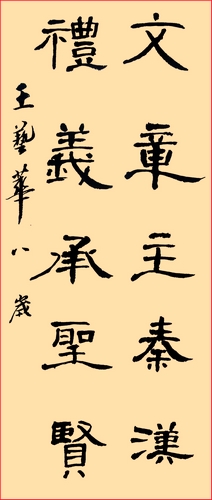 文章主秦漢
禮義承聖賢
王藝華八歲